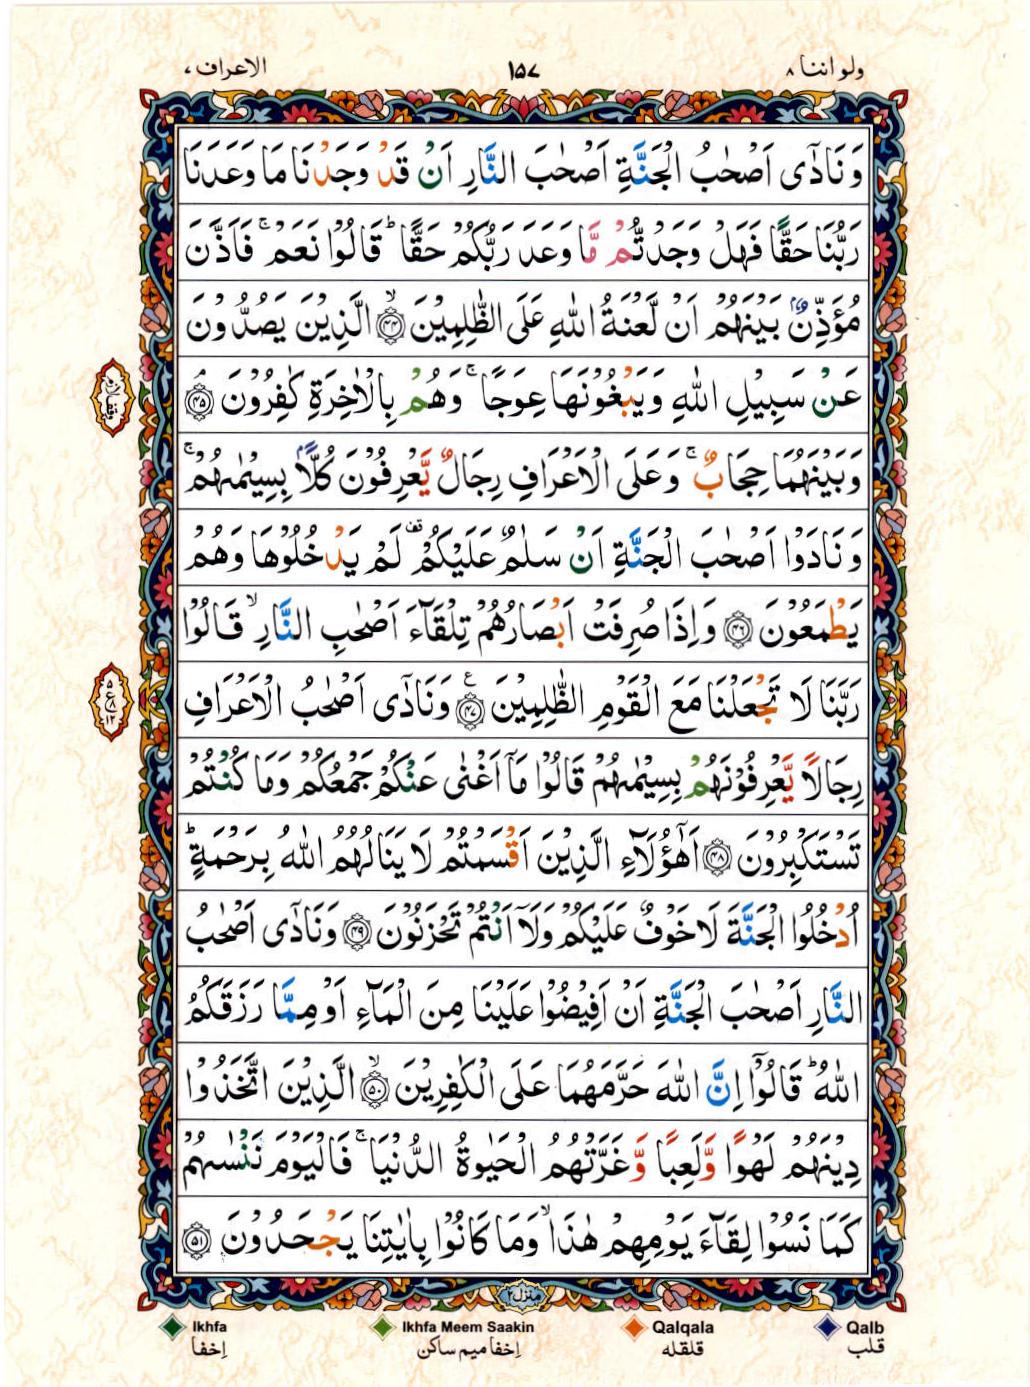 ولو اننا ۸
۱۵۷
الاعراف ۷
وَ نَادٰۤى اَصْحٰبُ الْجَنَّةِ اَصْحٰبَ النَّارِ اَنْ قَدْ وَجَدْنَا مَا وَعَدَنَا
رَبُّنَا حَقًّا فَهَلْ وَجَدْتُّمْ مَّا وَعَدَ رَبُّكُمْ حَقًّا ؕ قَالُوْا نَعَمْ ۚ فَاَذَّنَ
مُؤَذِّنٌۢ بَيْنَهُمْ اَنْ لَّعْنَةُ اللّٰهِ عَلَى الظّٰلِمِيْنَ ﴿۴۴﴾ۙ الَّذِيْنَ يَصُدُّوْنَ
عَنْ سَبِيْلِ اللّٰهِ وَيَبْغُوْنَهَا عِوَجًا ۚ وَهُمْ بِالْاٰخِرَةِ كٰفِرُوْنَ ﴿۴۵﴾ۘ
وقف لازم
وَبَيْنَهُمَا حِجَابٌ ۚ وَعَلَى الْاَعْرَافِ رِجَالٌ يَّعْرِفُوْنَ كُلًّاۢ بِسِيْمٰىهُمْ ۚ
وَنَادَوْا اَصْحٰبَ الْجَنَّةِ اَنْ سَلٰمٌ عَلَيْكُمْ ۟ لَمْ يَدْخُلُوْهَا وَهُمْ
يَطْمَعُوْنَ ﴿۴۶﴾ وَاِذَا صُرِفَتْ اَبْصَارُهُمْ تِلْقَآءَ اَصْحٰبِ النَّارِ ۙ قَالُوْا
رَبَّنَا لَا تَجْعَلْنَا مَعَ الْقَوْمِ الظّٰلِمِيْنَ ﴿۴۷﴾ع وَنَادٰۤى اَصْحٰبُ الْاَعْرَافِ
۵
ع ۸
۱۲
رِجَالًا يَّعْرِفُوْنَهُمْ بِسِيْمٰىهُمْ قَالُوْا مَاۤ اَغْنٰى عَنْكُمْ جَمْعُكُمْ وَمَا كُنْتُمْ
تَسْتَكْبِرُوْنَ ﴿۴۸﴾ اَهٰۤؤُلَآءِ الَّذِيْنَ اَقْسَمْتُمْ لَا يَنَالُهُمُ اللّٰهُ بِرَحْمَةٍ ؕ
اُدْخُلُوا الْجَنَّةَ لَا خَوْفٌ عَلَيْكُمْ وَلَاۤ اَنْتُمْ تَحْزَنُوْنَ ﴿۴۹﴾ وَنَادٰۤى اَصْحٰبُ
النَّارِ اَصْحٰبَ الْجَنَّةِ اَنْ اَفِيْضُوْا عَلَيْنَا مِنَ الْمَآءِ اَوْ مِمَّا رَزَقَكُمُ
اللّٰهُ ؕ قَالُوْۤا اِنَّ اللّٰهَ حَرَّمَهُمَا عَلَى الْكٰفِرِيْنَ ﴿۵۰﴾ۙ الَّذِيْنَ اتَّخَذُوْا
دِيْنَهُمْ لَهْوًا وَّلَعِبًا وَّغَرَّتْهُمُ الْحَيٰوةُ الدُّنْيَا ۚ فَالْيَوْمَ نَنْسٰىهُمْ
كَمَا نَسُوْا لِقَآءَ يَوْمِهِمْ هٰذَا ۙ وَمَا كَانُوْا بِاٰيٰتِنَا يَجْحَدُوْنَ ﴿۵۱﴾
منزل ۲
Ikhfa Ikhfa Meem Saakin Qalqala Qalb
اِخفا اِخفا ميم ساكن قلقله قلب